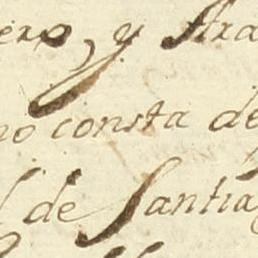 ero, y Fra
no consta de
l de Santia